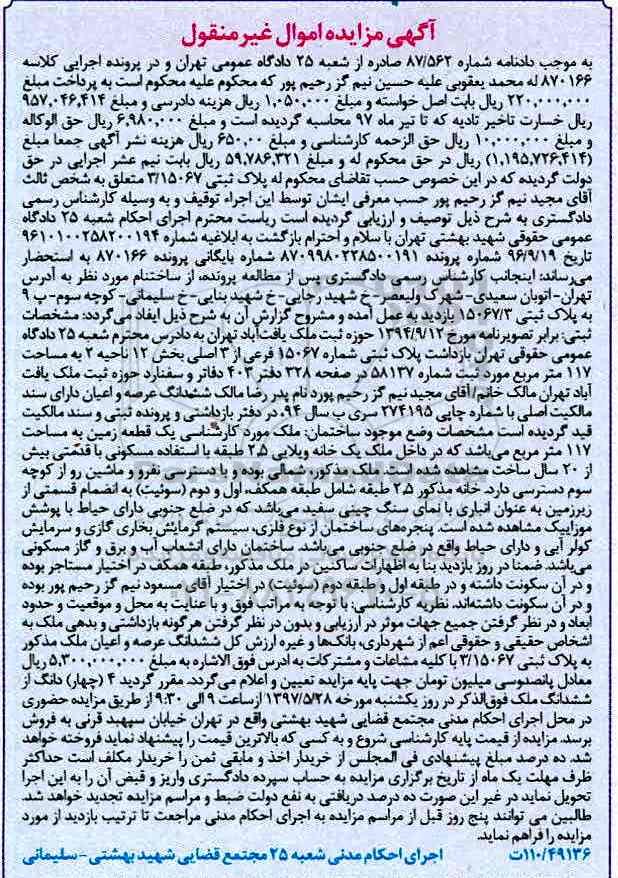 آگهی مزایده اموال غیر منقول
به موجب دادنامه شماره ۸۷/۵۶۲ صادره از شعبه ۲۵ دادگاه عمومی تهران و در پرونده اجرایی کلاسه
۸۷۰۱۶۶ له محمد یعقوبی علیه حسین نیم گز رحیم پور که محکوم علیه محکوم است به پرداخت مبلغ
۲۲۰,۰۰۰,۰۰۰ ریال بابت اصل خواسته و مبلغ ۱,۰۵۰,۰۰۰ ریال هزینه دادرسی و مبلغ ۹۵۷,۰۴۶,۴۱۴
ریال خسارت تاخیر تادیه که تا تیر ماه ۹۷ محاسبه گردیده است و مبلغ ۶,۹۸۰,۰۰۰ ریال حق الوکاله
و مبلغ ۱۰,۰۰۰,۰۰۰ ریال حق الزحمه کارشناسی و مبلغ ۶۵۰,۰۰ ریال هزینه نشر آگهی جمعا مبلغ
(۱,۱۹۵,۷۲۶,۴۱۴) ریال در حق محکوم له و مبلغ ۵۹,۷۸۶,۳۲۱ ریال بابت نیم عشر اجرایی در حق
دولت گردیده که در این خصوص حسب تقاضای محکوم له پلاک ثبتی ۳/۱۵۰۶۷ متعلق به شخص ثالث
آقای مجید نیم گز رحیم پور حسب معرفی ایشان توسط این اجراء توقیف و به وسیله کارشناس رسمی
دادگستری به شرح ذیل توصیف و ارزیابی گردیده است ریاست محترم اجرای احکام شعبه ۲۵ دادگاه
عمومی حقوقی شهید بهشتی تهران با سلام و احترام بازگشت به ابلاغیه شماره ۹۶۱۰۱۰۰۲۵۸۲۰۰۱۹۴
تاریخ ۹۶/۹/۱۹ شماره پرونده ۸۷۰۹۹۸۰۲۲۸۵۰۰۱۹۱ شماره بایگانی پرونده ۸۷۰۱۶۶ به استحضار
می‌رساند: اینجانب کارشناس رسمی دادگستری پس از مطالعه پرونده، از ساختنام مورد نظر به آدرس
تهران- اتوبان سعیدی- شهرک ولیعصر- خ شهید رجایی- خ شهید بنایی- خ سلیمانی- کوچه سوم- پ ۹
به پلاک ثبتی ۱۵۰۶۷/۳ بازدید به عمل آمده و مشروح گزارش آن به شرح ذیل ایفاد می‌گردد: مشخصات
ثبتی: برابر تصویرنامه مورخ ۱۳۹۴/۹/۱۲ حوزه ثبت ملک یافت‌آباد تهران به دادرس محترم شعبه ۲۵ دادگاه
عمومی حقوقی تهران بازداشت پلاک ثبتی شماره ۱۵۰۶۷ فرعی از ۳ اصلی بخش ۱۲ ناحیه ۲ به مساحت
۱۱۷ متر مربع مورد ثبت شماره ۵۸۱۳۷ در صفحه ۳۲۸ دفتر ۴۰۳ دفاتر و سفنارد حوزه ثبت ملک یافت
آباد تهران مالک خانم/ آقای مجید نیم گز رحیم پورد نام پدر رضا مالک ششدانگ عرصه و اعیان دارای سند
مالکیت اصلی با شماره چاپی ۲۷۴۱۹۵ سری ب سال ۹۴، در دفتر بازداشتی و پرونده ثبتی و سند مالکیت
قید گردیده است مشخصات وضع موجود ساختمان: ملک مورد کارشناسی یک قطعه زمین به مساحت
۱۱۷ متر مربع می‌باشد که در داخل ملک یک خانه ویلایی ۲٫۵ طبقه با استفاده مسکونی با قدمتی بیش
از ۲۰ سال ساخت مشاهده شده است. ملک مذکور، شمالی بوده و با دسترسی نفرو و ماشین رو از کوچه
سوم دسترسی دارد. خانه مذکور ۲٫۵ طبقه شامل طبقه همکف، اول و دوم (سوئیت) به انضمام قسمتی از
زیرزمین به عنوان انباری با نمای سنگ چینی سفید می‌باشد که در ضلع جنوبی دارای حیاط با پوشش
موزاییک مشاهده شده است. پنجره‌های ساختمان از نوع فلزی، سیستم گرمایش بخاری گازی و سرمایش
کولر آبی و دارای حیاط واقع در ضلع جنوبی می‌باشد. ساختمان دارای انشعاب آب و برق و گاز مسکونی
می‌باشد. ضمنا در روز بازدید بنا به اظهارات ساکنین در ملک مذکور، طبقه همکف در اختیار مستاجر بوده
و در آن سکونت داشته و در طبقه اول و طبقه دوم (سوئت) در اختیار آقای مسعود نیم گز رحیم پور بوده
و در آن سکونت داشته‌اند. نظریه کارشناسی: با توجه به مراتب فوق و با عنایت به محل و موقعیت و حدود
ابعاد و در نظر گرفتن جمیع جهات موثر در ارزیابی و بدون در نظر گرفتن هرگونه بازداشتی و بدهی ملک به
اشخاص حقیقی و حقوقی اعم از شهرداری، بانک‌ها و غیره ارزش کل ششدانگ عرصه و اعیان ملک مذکور
به پلاک ثبتی ۳/۱۵۰۶۷ با کلیه مشاعات و مشترکات به آدرس فوق الاشاره به مبلغ ۵,۳۰۰,۰۰۰,۰۰۰ ریال
معادل پانصدوسی میلیون تومان جهت پایه مزایده تعیین و اعلام می‌گردد. مقرر گردید ۴ (چهار) دانگ از
ششدانگ ملک فوق‌الذکر در روز یکشنبه مورخه ۱۳۹۷/۵/۲۸ از ساعت ۹ الی ۹:۳۰ از طریق مزایده حضوری
در محل اجرای احکام مدنی مجتمع قضایی شهید بهشتی واقع در تهران خیابان سپهبد قرنی به فروش
برسد. مزایده از قیمت پایه کارشناسی شروع و به کسی که بالاترین قیمت را پیشنهاد نماید فروخته خواهد
شد. ده درصد مبلغ پیشنهادی فی المجلس از خریدار اخذ و مابقی ثمن را خریدار مکلف است حداکثر
ظرف مهلت یک ماه از تاریخ برگزاری مزایده به حساب سپرده دادگستری واریز و قبض آن را به این اجرا
تحویل نماید در غیر این صورت ده درصد دریافتی به نفع دولت ضبط و مراسم مزایده تجدید خواهد شد.
طالبین می توانند پنج روز قبل از مراسم مزایده به اجرای احکام مدنی مراجعت تا ترتیب بازدید از مورد
مزایده را فراهم نماید.
۱۱۰/۴۹۱۳۶ت اجرای احکام مدنی شعبه ۲۵ مجتمع قضایی شهید بهشتی- سلیمانی